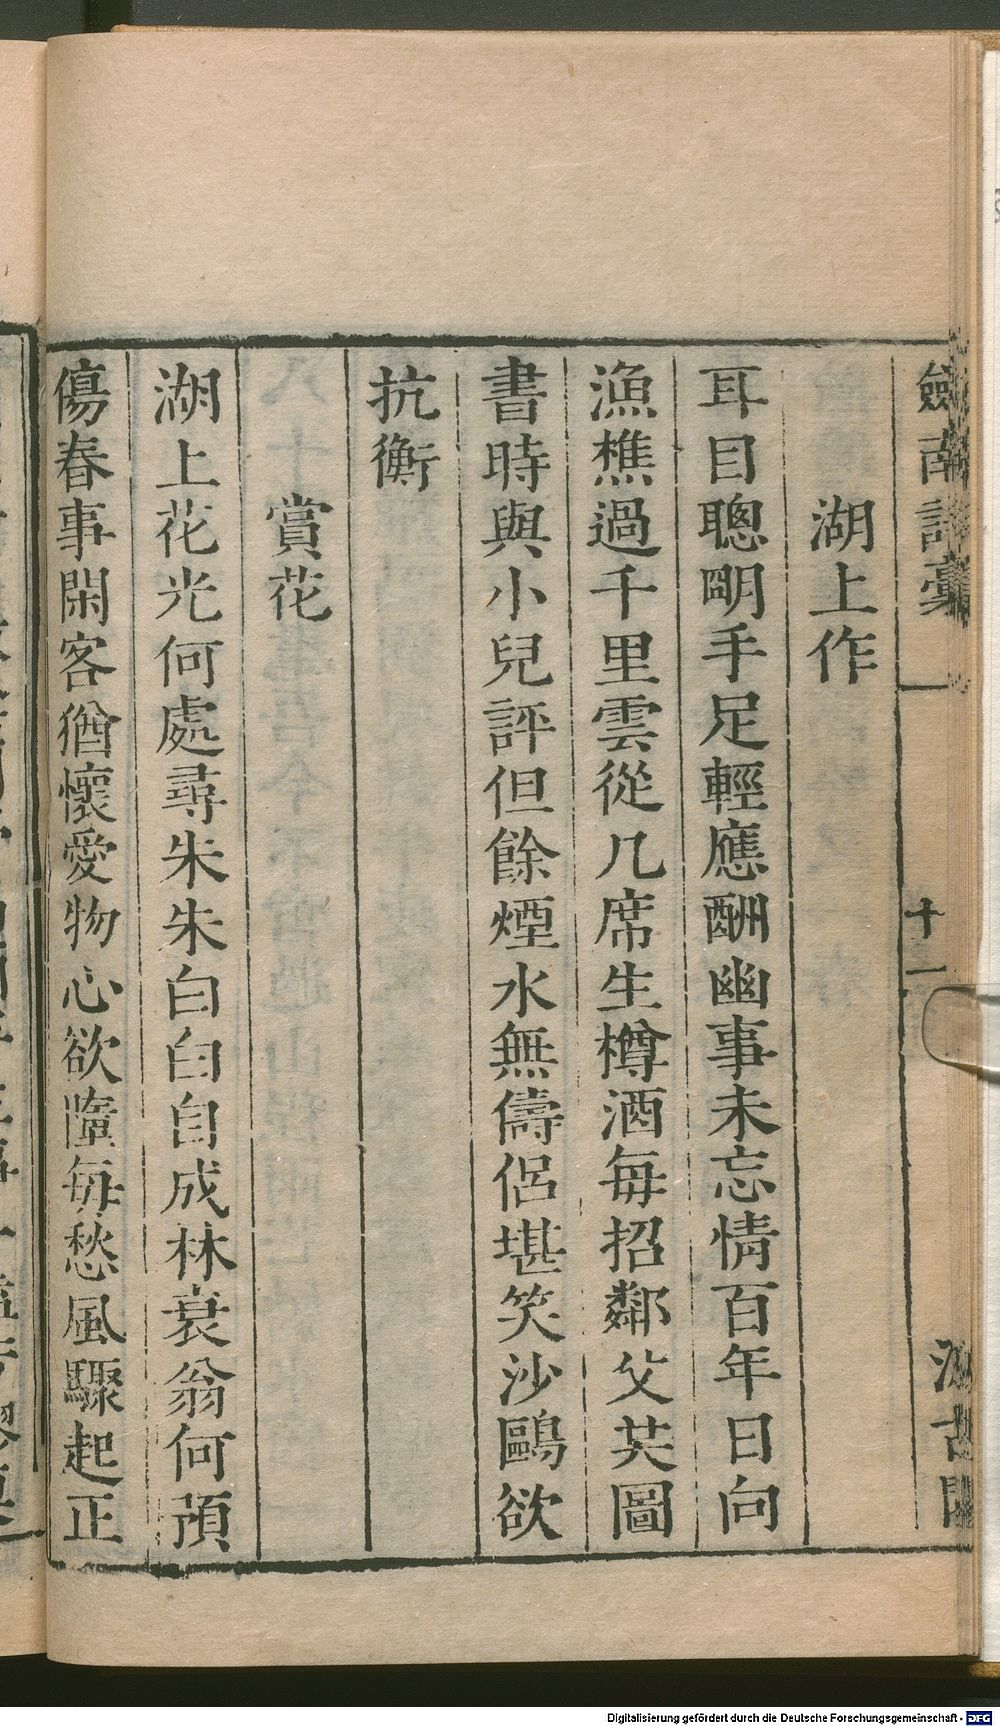 劒南詩稾
十一
汲古閣
湖上作
耳目聰明手足輕應酬幽事未忘情百年日向
漁樵過千里雲從几席生樽酒毎招鄰父共圖
書時與小兒評但餘煙水無儔侣堪笑沙鷗欲
抗衡
賞花
湖上花光何處尋朱朱白白自成林衰翁何預
傷春事閑客猶懷愛物心欲隨毎愁風驟起正
Digitalisierung gefördert durch die Deutsche Forschungsgemeinschaft - DFG